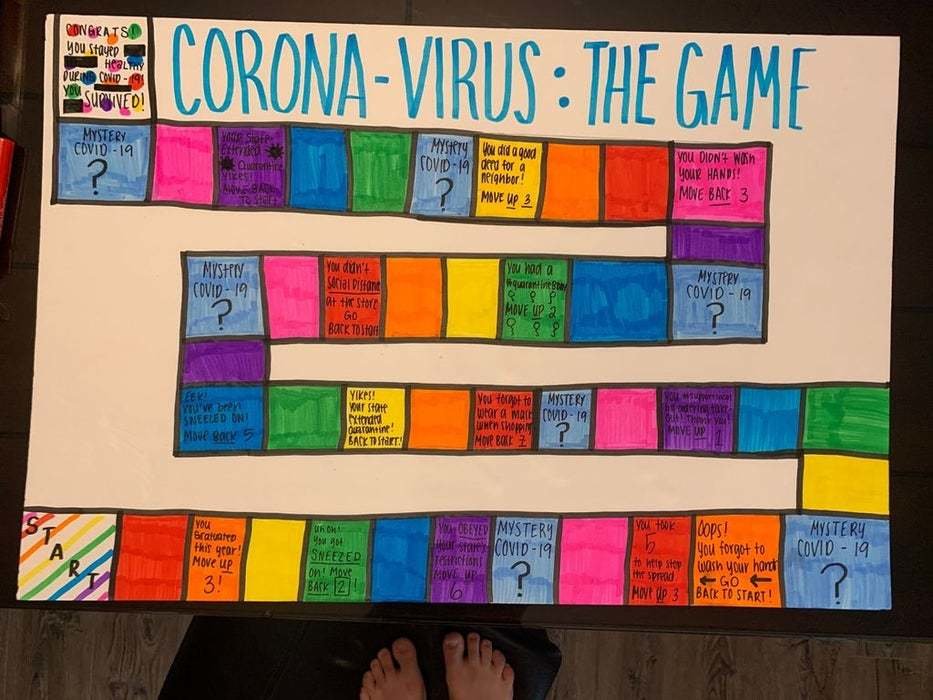 CONGRATS!
you stayed
HEALTHY
DURING COVID-19!
YOU
SURVIVED!
CORONA-VIRUS: THE GAME
MYSTERY
COVID-19
?
YOUR STATE
Extended
Quarantine
YIKES!
Move BACK
TO START
MYSTERY
COVID-19
?
You did a good
deed for a
neighbor!
MOVE UP 3
YOU DIDN'T WASH
YOUR HANDS!
MOVE BACK 3
MYSTERY
COVID-19
?
You didn't
Social Distance
at the store
GO
BACK TO START
YOU HAD A
MOVE UP 2
MYSTERY
COVID-19
?
EEK!
YOU'VE BEEN
SNEEZED ON!
MOVE BACK 5
YIKES!
Your State
Extended
Quarantine!
BACK TO START!
You forgot to
wear a mask
when shopping
MOVE BACK 7
MYSTERY
COVID-19
?
You #supportlocal
by ordering take-
out! Thank you!
MOVE UP 1
START
YOU
Graduated
this year!
MOVE UP
3!
UH OH!
You got
SNEEZED
ON! MOVE
BACK 2!
YOU OBEYED
your state's
restrictions
MOVE UP
6
MYSTERY
COVID-19
?
YOU TOOK
5
to help stop
the spread
MOVE UP 3
OOPS!
You forgot to
wash your hands
← GO ←
BACK TO START!
MYSTERY
COVID-19
?